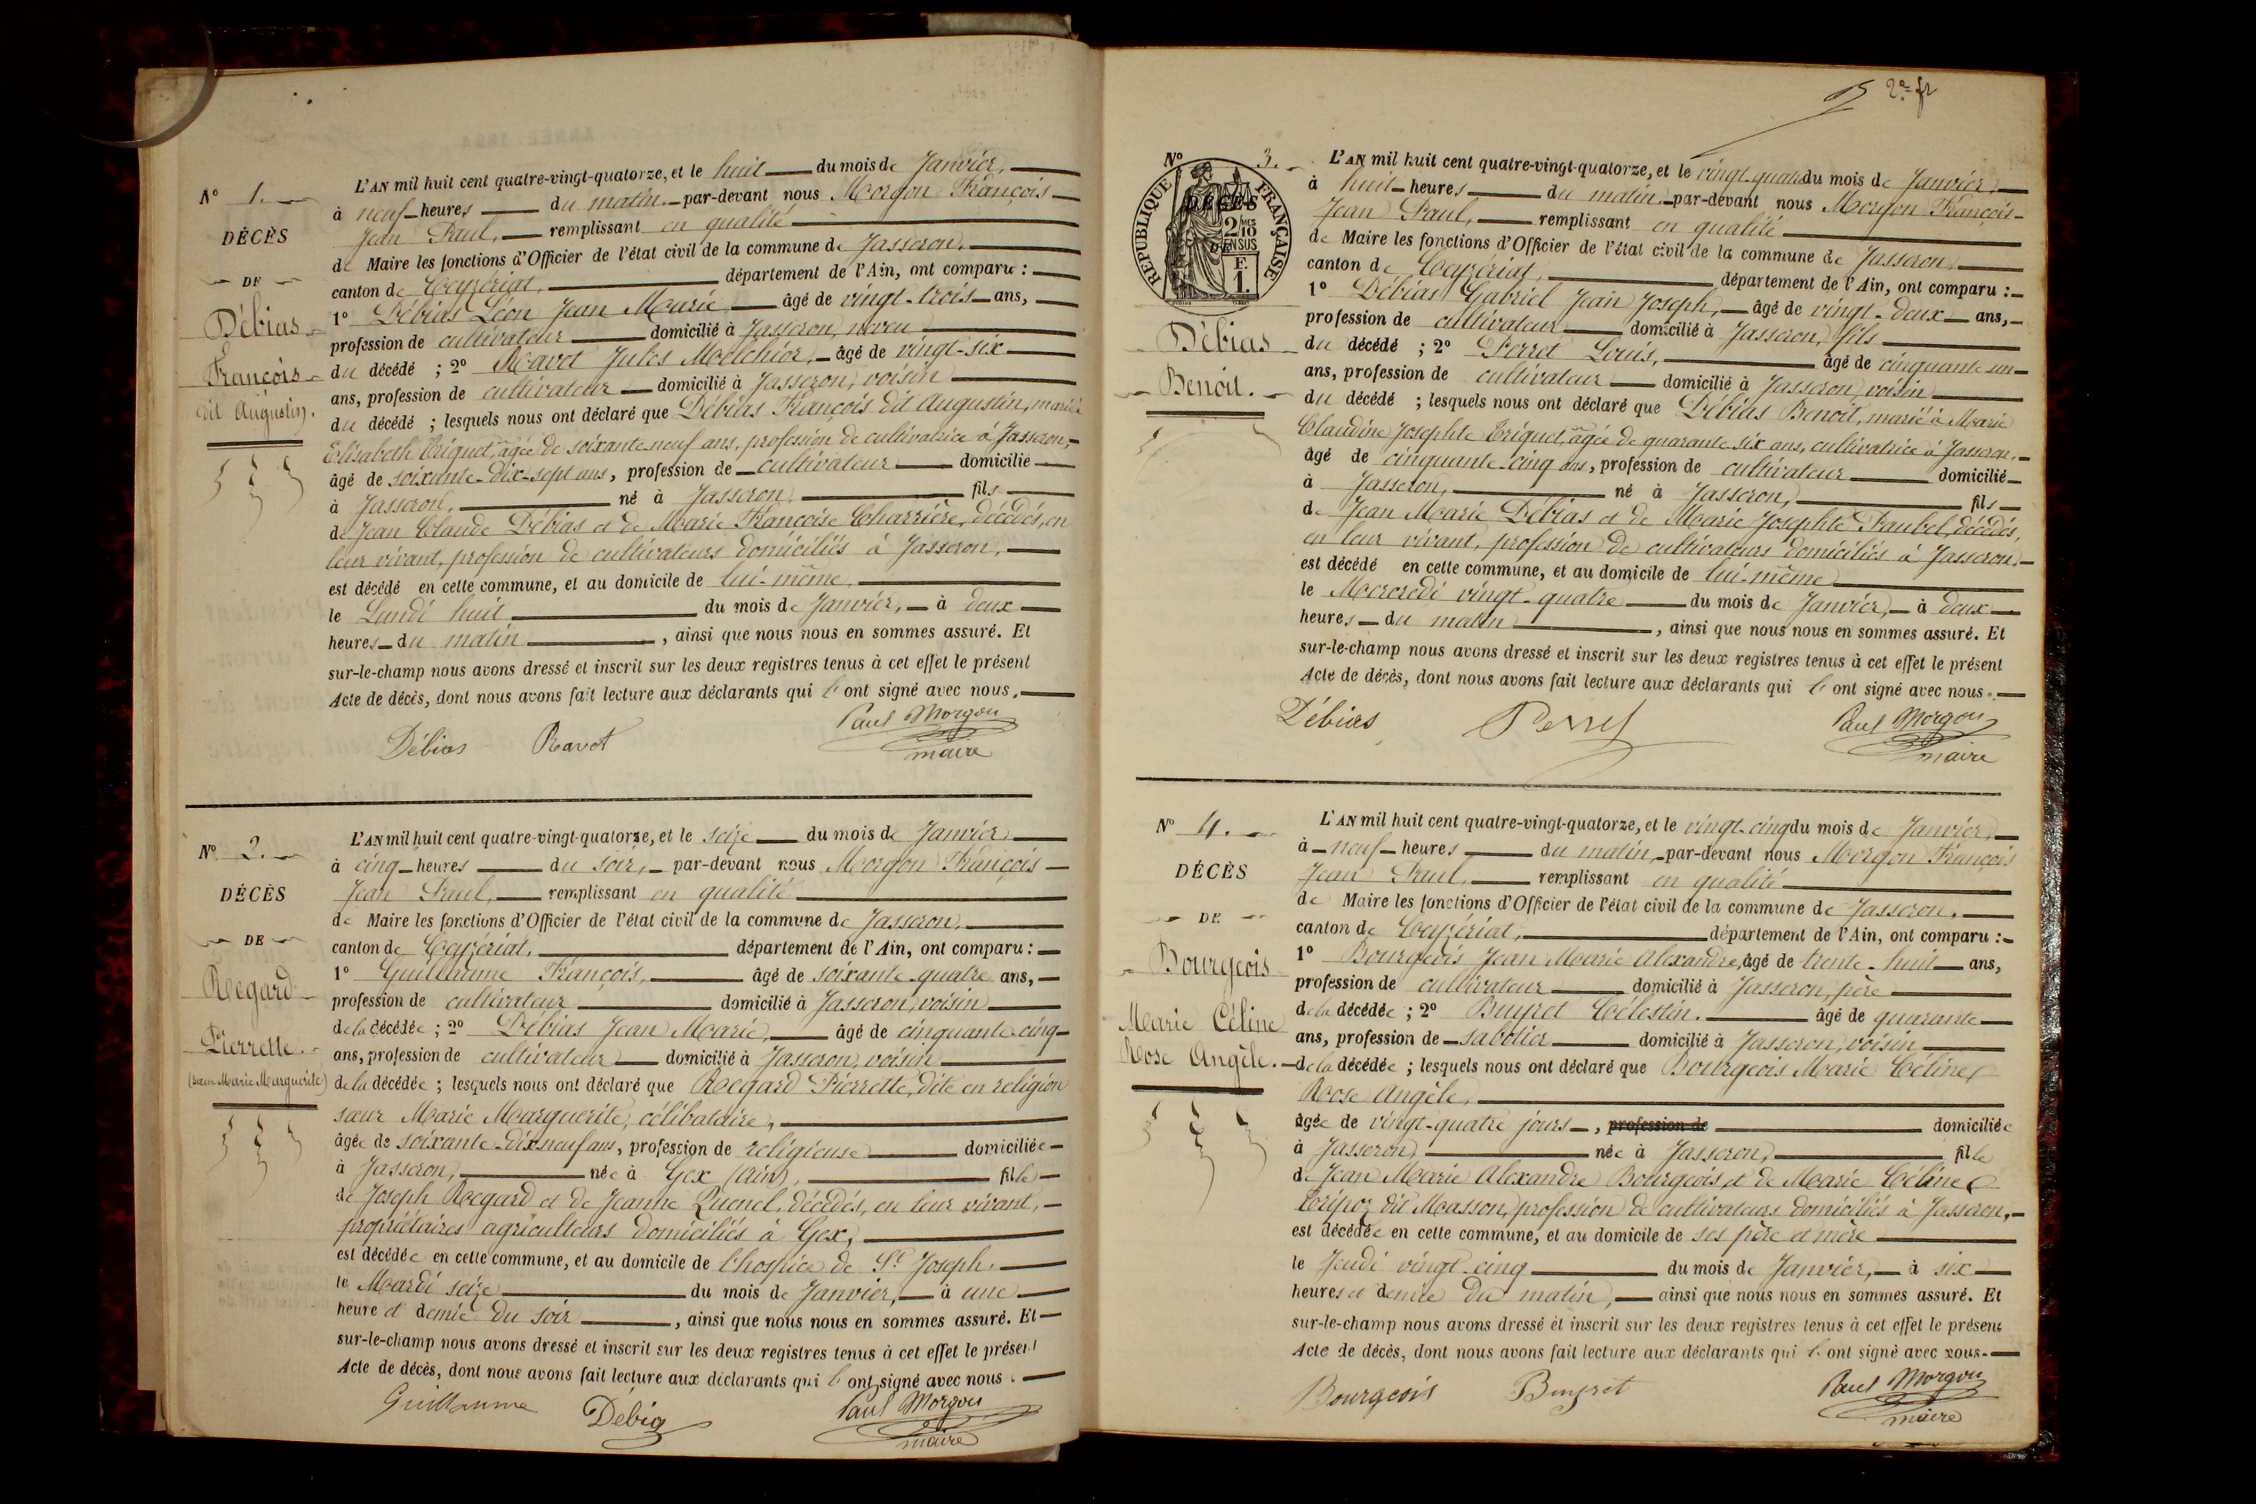 N° 1.
DÉCÈS
DE
Débias
François
dit Augustin.
L'AN mil huit cent quatre-vingt-quatorze, et le huit du mois de Janvier,
à neuf heures du matin, par-devant nous Morgon François
Jean Paul, remplissant en qualité
de Maire les fonctions d'Officier de l'état civil de la commune de Jasseron,
canton de Ceyzériat, département de l'Ain, ont comparu :
1° Débias Léon Jean Marie, âgé de vingt-trois ans,
profession de cultivateur domicilié à Jasseron, neveu
du décédé ; 2° Ravot Jules Melchior, âgé de vingt-six
ans, profession de cultivateur domicilié à Jasseron, voisin
du décédé ; lesquels nous ont déclaré que Débias François dit Augustin, marié à
Elisabeth Triquet, âgée de soixante neuf ans, profession de cultivatrice à Jasseron,
âgé de soixante-dix-sept ans, profession de cultivateur domicilié
à Jasseron, né à Jasseron, fils
de Jean Claude Débias et de Marie Françoise Charrière, décédés, en
leur vivant, profession de cultivateurs domiciliés à Jasseron,
est décédé en cette commune, et au domicile de lui-même,
le Lundi huit du mois de Janvier, à deux
heures du matin, ainsi que nous nous en sommes assuré. Et
sur-le-champ nous avons dressé et inscrit sur les deux registres tenus à cet effet le présent
Acte de décès, dont nous avons fait lecture aux déclarants qui l'ont signé avec nous.
Débias Ravot Paul Morgon
maire
N° 2.
DÉCÈS
DE
Regard
Pierrette.
(sœur Marie Marguerite)
L'AN mil huit cent quatre-vingt-quatorze, et le seize du mois de Janvier
à cinq heures du soir, par-devant nous Morgon François
Jean Paul, remplissant en qualité
de Maire les fonctions d'Officier de l'état civil de la commune de Jasseron,
canton de Ceyzériat, département de l'Ain, ont comparu :
1° Guillaume François, âgé de soixante-quatre ans,
profession de cultivateur domicilié à Jasseron, voisin
de la décédée ; 2° Débias Jean Marie, âgé de cinquante-cinq
ans, profession de cultivateur domicilié à Jasseron, voisin
de la décédée ; lesquels nous ont déclaré que Regard Pierrette, dite en religion
sœur Marie Marguerite, célibataire,
âgée de soixante-dix-neuf ans, profession de religieuse domiciliée
à Jasseron, née à Gex (Ain), fille
de Joseph Regard et de Jeanne décédés, en leur vivant,
propriétaires agriculteurs domiciliés à Gex,
est décédée en cette commune, et au domicile de l'hospice de St Joseph,
le Mardi seize du mois de Janvier, à une
heure et demie du soir, ainsi que nous nous en sommes assuré. Et
sur-le-champ nous avons dressé et inscrit sur les deux registres tenus à cet effet le présent
Acte de décès, dont nous avons fait lecture aux déclarants qui l'ont signé avec nous.
Guillaume Débias Paul Morgon
maire
N° 3.
RÉPUBLIQUE FRANÇAISE
DÉCÈS
2/10 EN SUS
F. 1.
Débias
Benoit.
L'AN mil huit cent quatre-vingt-quatorze, et le vingt-quatre du mois de Janvier,
à huit heures du matin, par-devant nous Morgon François
Jean Paul, remplissant en qualité
de Maire les fonctions d'Officier de l'état civil de la commune de Jasseron,
canton de Ceyzériat, département de l'Ain, ont comparu :
1° Débias Gabriel Jean Joseph, âgé de vingt-deux ans,
profession de cultivateur domicilié à Jasseron, fils
du décédé ; 2° Perret Louis, âgé de cinquante un
ans, profession de cultivateur domicilié à Jasseron, voisin
du décédé ; lesquels nous ont déclaré que Débias Benoit, marié à Marie
Claudine Josephte Triquet, âgée de quarante six ans, cultivatrice à Jasseron,
âgé de cinquante-cinq ans, profession de cultivateur domicilié
à Jasseron, né à Jasseron, fils
de Jean Marie Débias et de Marie Josephte décédés,
en leur vivant, profession de cultivateurs domiciliés à Jasseron,
est décédé en cette commune, et au domicile de lui-même
le Mercredi vingt-quatre du mois de Janvier, à deux
heures du matin, ainsi que nous nous en sommes assuré. Et
sur-le-champ nous avons dressé et inscrit sur les deux registres tenus à cet effet le présent
Acte de décès, dont nous avons fait lecture aux déclarants qui l'ont signé avec nous.
Débias Perret Paul Morgon
maire
N° 4.
DÉCÈS
DE
Bourgeois
Marie Céline
Rose Angèle.
L'AN mil huit cent quatre-vingt-quatorze, et le vingt-cinq du mois de Janvier,
à neuf heures du matin, par-devant nous Morgon François
Jean Paul, remplissant en qualité
de Maire les fonctions d'Officier de l'état civil de la commune de Jasseron,
canton de Ceyzériat, département de l'Ain, ont comparu :
1° Bourgeois Jean Marie Alexandre, âgé de trente-huit ans,
profession de cultivateur domicilié à Jasseron, père
de la décédée ; 2° Buyret Célestin, âgé de quarante
ans, profession de sabotier domicilié à Jasseron, voisin
de la décédée ; lesquels nous ont déclaré que Bourgeois Marie Céline
Rose Angèle,
âgée de vingt-quatre jours, profession de domiciliée
à Jasseron, née à Jasseron, fille
de Jean Marie Alexandre Bourgeois, et de Marie Céline
dit Masson, profession de cultivateurs domiciliés à Jasseron,
est décédée en cette commune, et au domicile de ses père et mère
le Jeudi vingt-cinq du mois de Janvier, à six
heures et demie du matin, ainsi que nous nous en sommes assuré. Et
sur-le-champ nous avons dressé et inscrit sur les deux registres tenus à cet effet le présent
Acte de décès, dont nous avons fait lecture aux déclarants qui l'ont signé avec nous.
Bourgeois Buyret Paul Morgon
maire